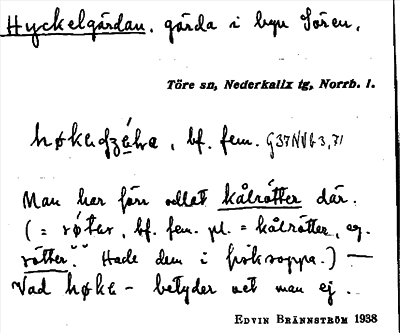 Hyckelgårdan. gärda i byn Sören.
Töre sn, Nederkalix tg, Norrb. l.
bf. fem.
Man har förr odlat kålrötter där.
(= bf. fem. pl. = kålrötter, eg.
"rötter". Hade dem i fisksoppa.) —
Vad høke- betyder vet man ej.
EDVIN BRÄNNSTRÖM 1938